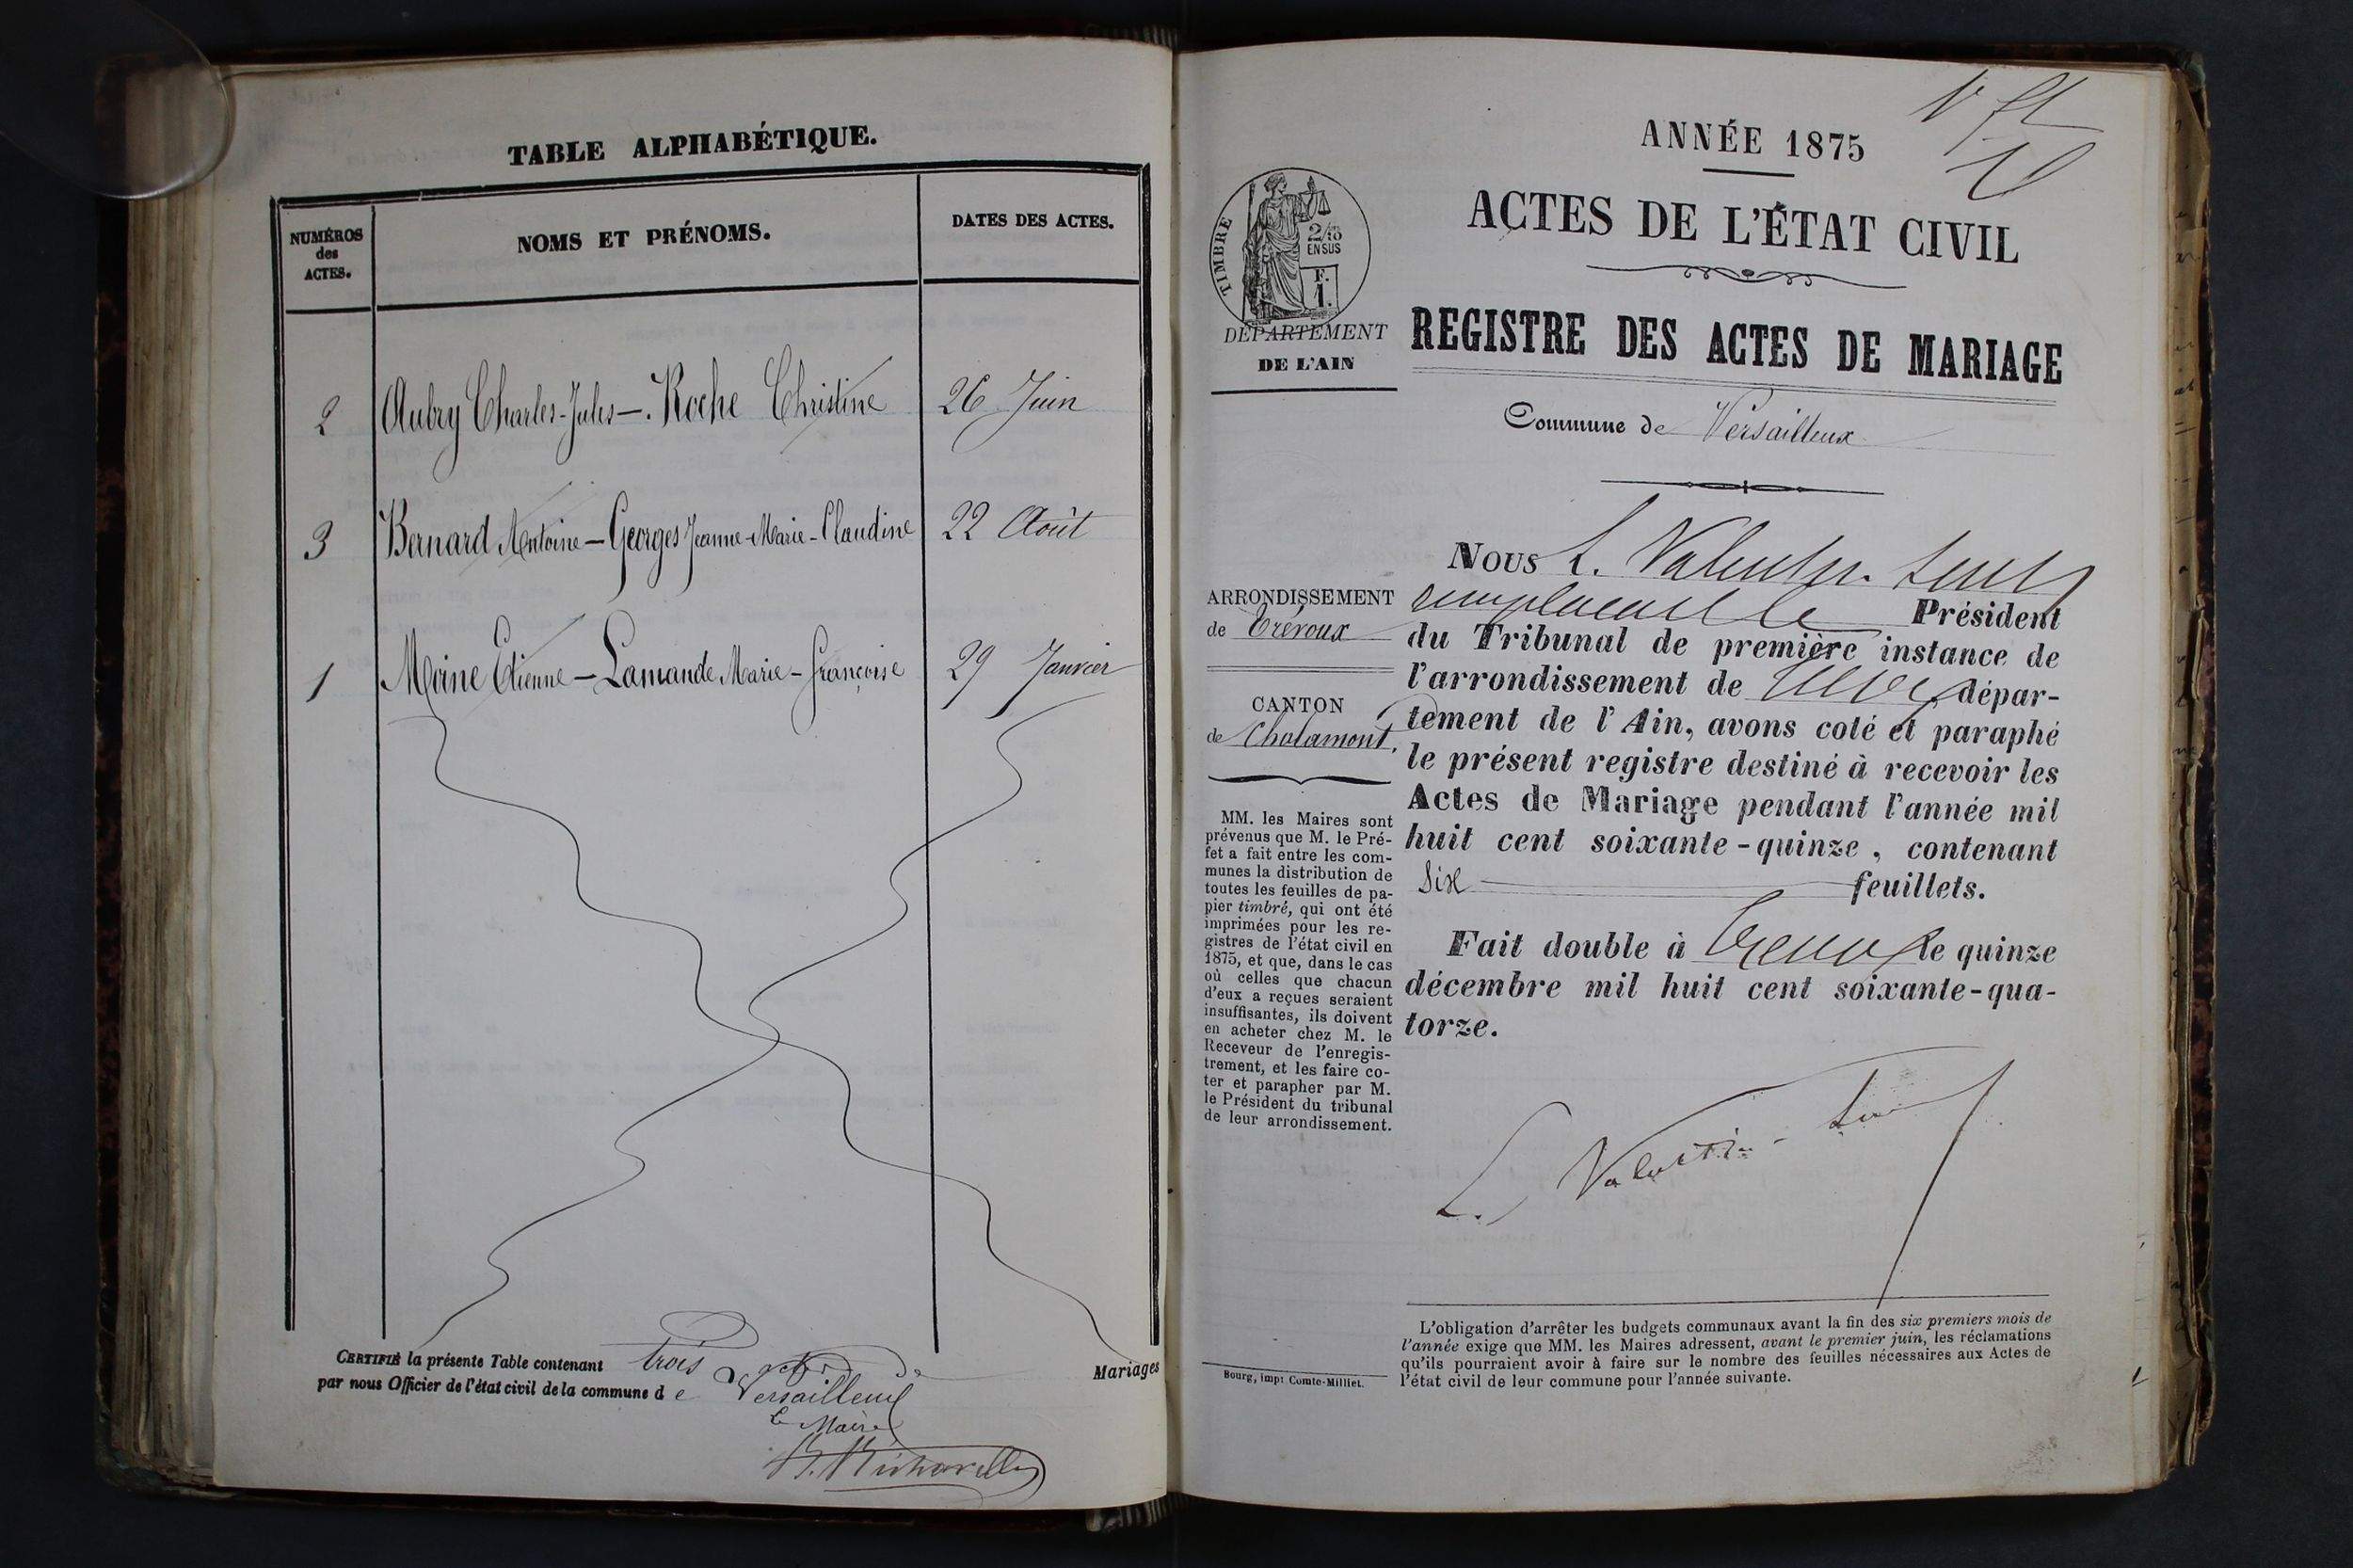 TABLE ALPHABÉTIQUE.
NUMÉROS
des
ACTES.
NOMS ET PRÉNOMS.
DATES DES ACTES.
2 Aubry Charles-Jules — Roche Christine 26 Juin
3 Bernard Antoine — Georges Jeanne-Marie-Claudine 22 Août
1 Moine Etienne — Lamande Marie-Françoise 29 Janvier
CERTIFIÉ la présente Table contenant trois actes de Mariages
par nous Officier de l'état civil de la commune de Versailleux
Le Maire
ANNÉE 1875
ACTES DE L'ÉTAT CIVIL
TIMBRE
2/10
EN SUS
F.
1.
DÉPARTEMENT
DE L'AIN
REGISTRE DES ACTES DE MARIAGE
Commune de Versailleux
ARRONDISSEMENT
de Trévoux
CANTON
de Chalamont.
MM. les Maires sont
prévenus que M. le Pré-
fet a fait entre les com-
munes la distribution de
toutes les feuilles de pa-
pier timbré, qui ont été
imprimées pour les re-
gistres de l'état civil en
1875, et que, dans le cas
où celles que chacun
d'eux a reçues seraient
insuffisantes, ils doivent
en acheter chez M. le
Receveur de l'enregis-
trement, et les faire co-
ter et parapher par M.
le Président du tribunal
de leur arrondissement.
Bourg, imp: Comte-Milliet.
Nous L. Valentin
remplaçant le Président
du Tribunal de première instance de
l'arrondissement de Trévoux dépar-
tement de l'Ain, avons coté et paraphé
le présent registre destiné à recevoir les
Actes de Mariage pendant l'année mil
huit cent soixante-quinze, contenant
Six feuillets.
Fait double à Trévoux le quinze
décembre mil huit cent soixante-qua-
torze.
L. Valentin
L'obligation d'arrêter les budgets communaux avant la fin des six premiers mois de
l'année exige que MM. les Maires adressent, avant le premier juin, les réclamations
qu'ils pourraient avoir à faire sur le nombre des feuilles nécessaires aux Actes de
l'état civil de leur commune pour l'année suivante.